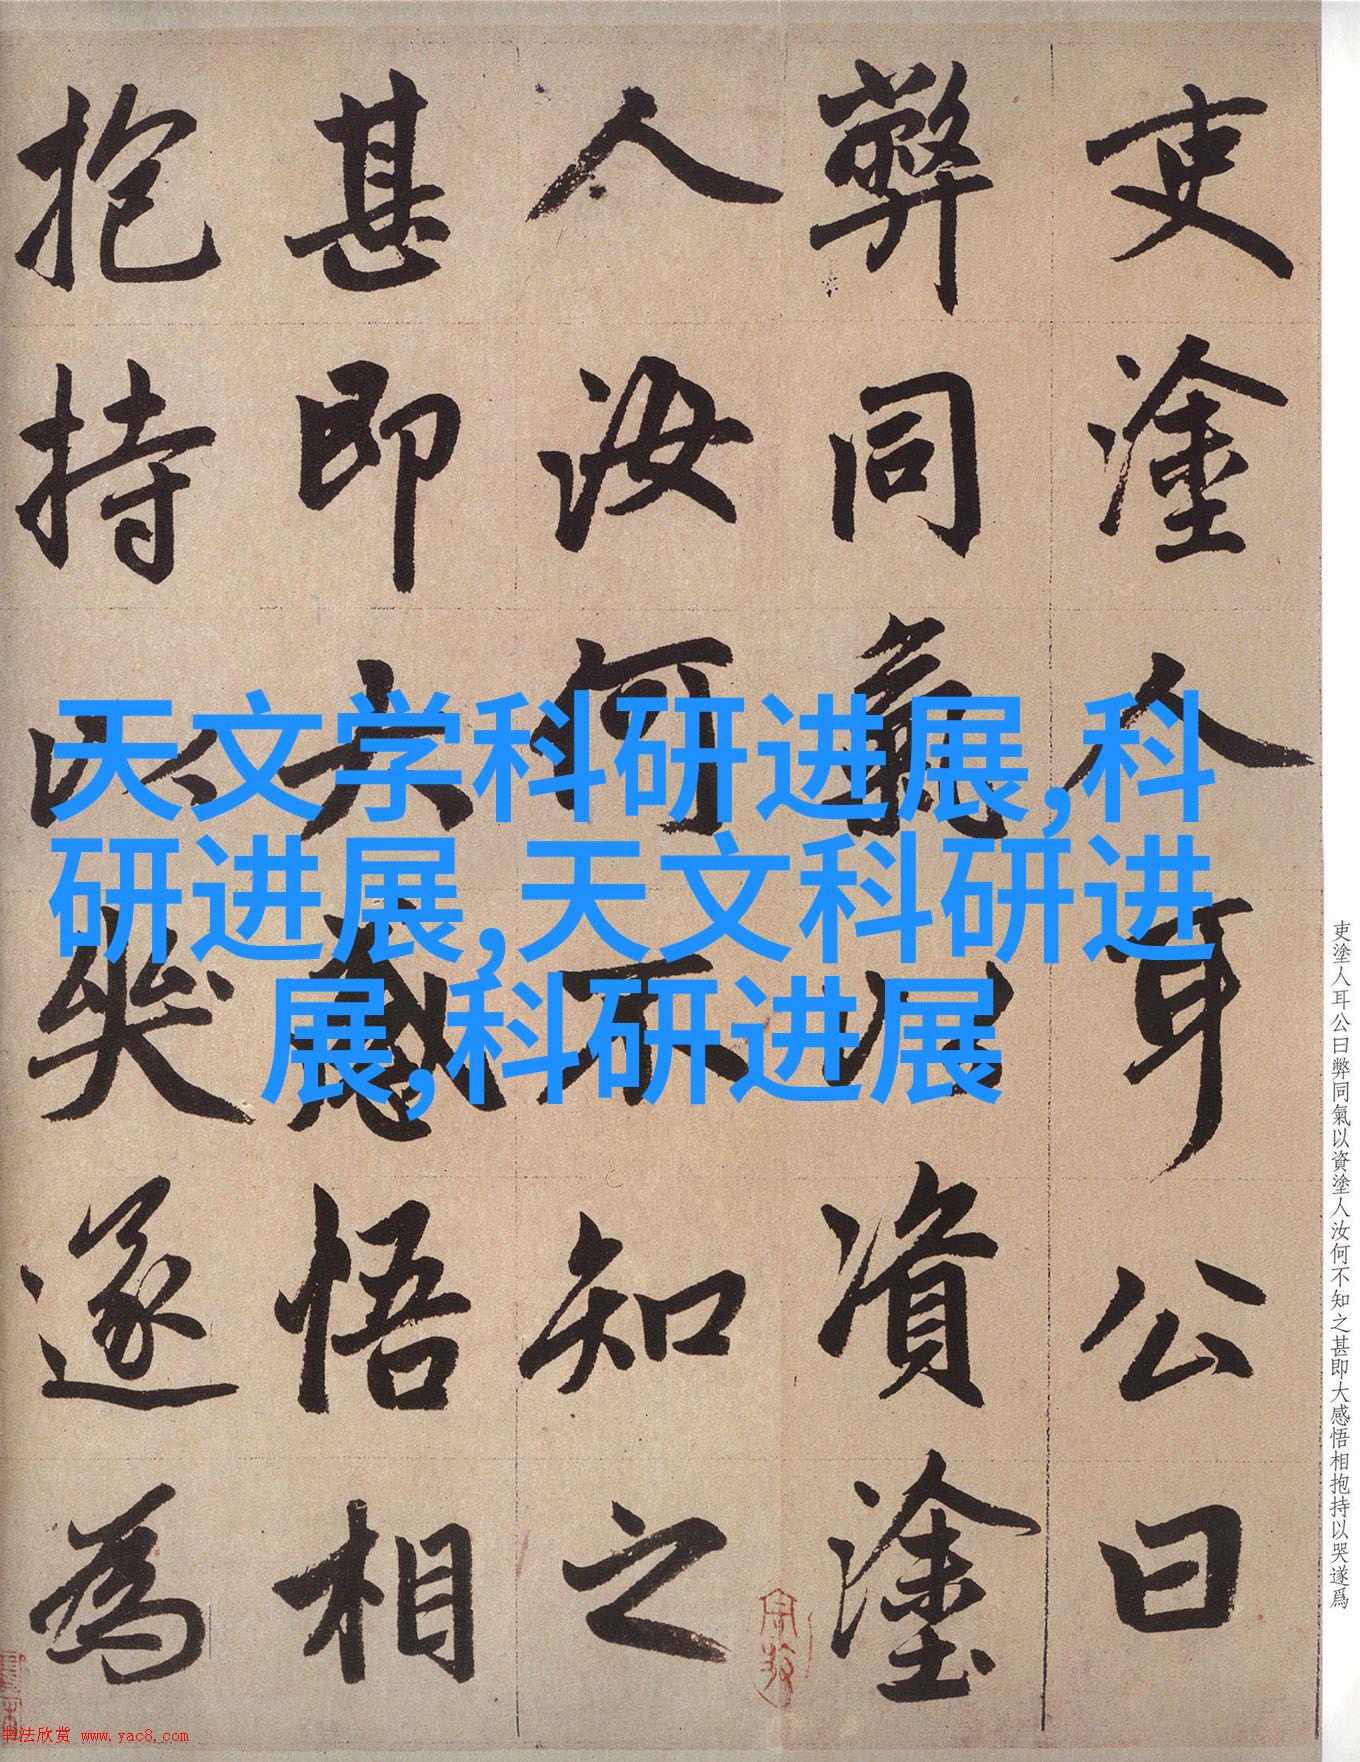 吏塗人耳公曰
弊同氣以資塗
人汝何不知之
甚即大感悟相
抱持以哭遂為
天文学科研进展,科
研进展,天文科研进
展,科研进展
吏塗人耳公曰弊同氣以資塗人汝何不知之甚即大感悟相抱持以哭遂爲
书法欣赏 www.yac8.com